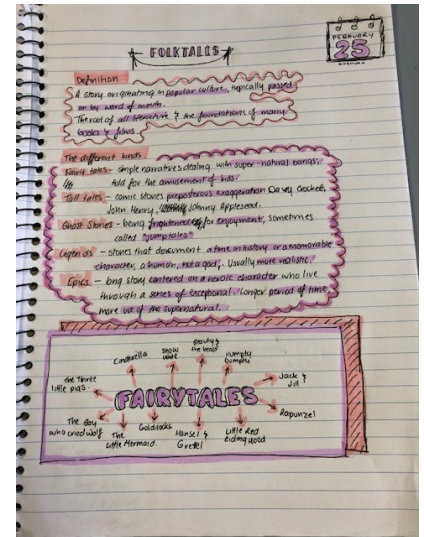 FOLKTALES
FEBRUARY
25
Definition
A story originating in popular culture, typically passed
on by word of mouth.
The root of all literature & the foundations of many
books & films.
The different kinds
Fairy tales - simple narratives dealing with super-natural beings,
told for the amusement of kids.
Tall Tales - comic stories preposterous exaggeration Davy Crocket,
John Henry, Johnny Appleseed.
Ghost Stories - being frightened for enjoyment, sometimes
called "jumptales"
Legends - stories that document a time in history or a memorable
character, a human, not a god. Usually more realistic.
Epics - long story centered on a heroic character who live
through a series of exceptional. Longer period of time,
more use of the supernatural.
Cinderella
Snow White
Beauty & the beast
Humpty Dumpty
Jack & Jill
The Three little pigs.
FAIRYTALES
Rapunzel
The Boy who cried wolf
The Little Mermaid.
Goldilocks
Hansel & Gretel
Little Red Riding Hood